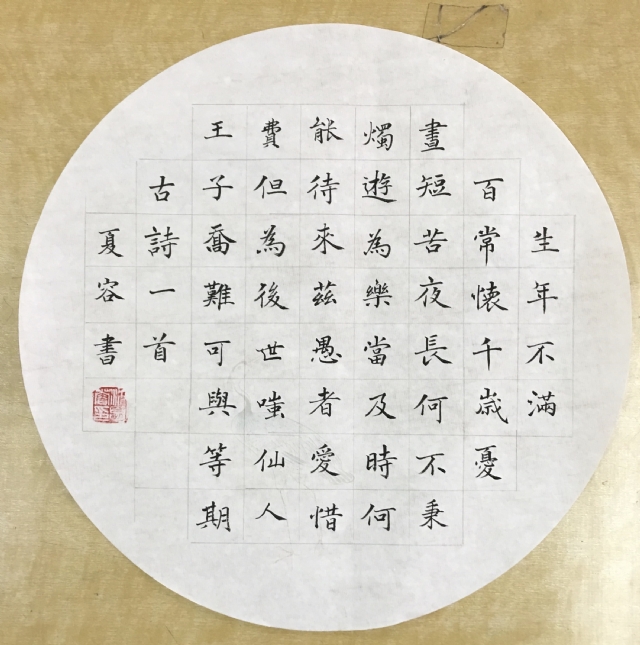 生年不滿
百常懷千歲憂
晝短苦夜長何不秉
燭遊為樂當及時何
能待來茲愚者愛惜
費但為後世嗤仙人
王子喬難可與等期
古詩一首
夏容書